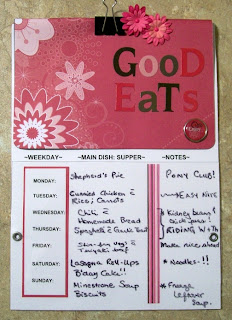 GooD
EaTs
~WEEKDAY~ ~MAIN DISH: SUPPER~ ~NOTES~
MONDAY: Shepherd's Pie PONY CLUB!
TUESDAY: Curried Chicken & EASY NITE
Rice; Carrots
WEDNESDAY: Chili & * Kidney beans &
Homemade Bread
THURSDAY: Spaghetti & Garlic Toast RIDING WITH
FRIDAY: Stir-fry vegs & Make rice ahead
Teriyaki beef
SATURDAY: Lasagna Roll-Ups * Noodles!!
B'day Cake!!
SUNDAY: Minestrone Soup * Freeze
Biscuits leftover
Soup.